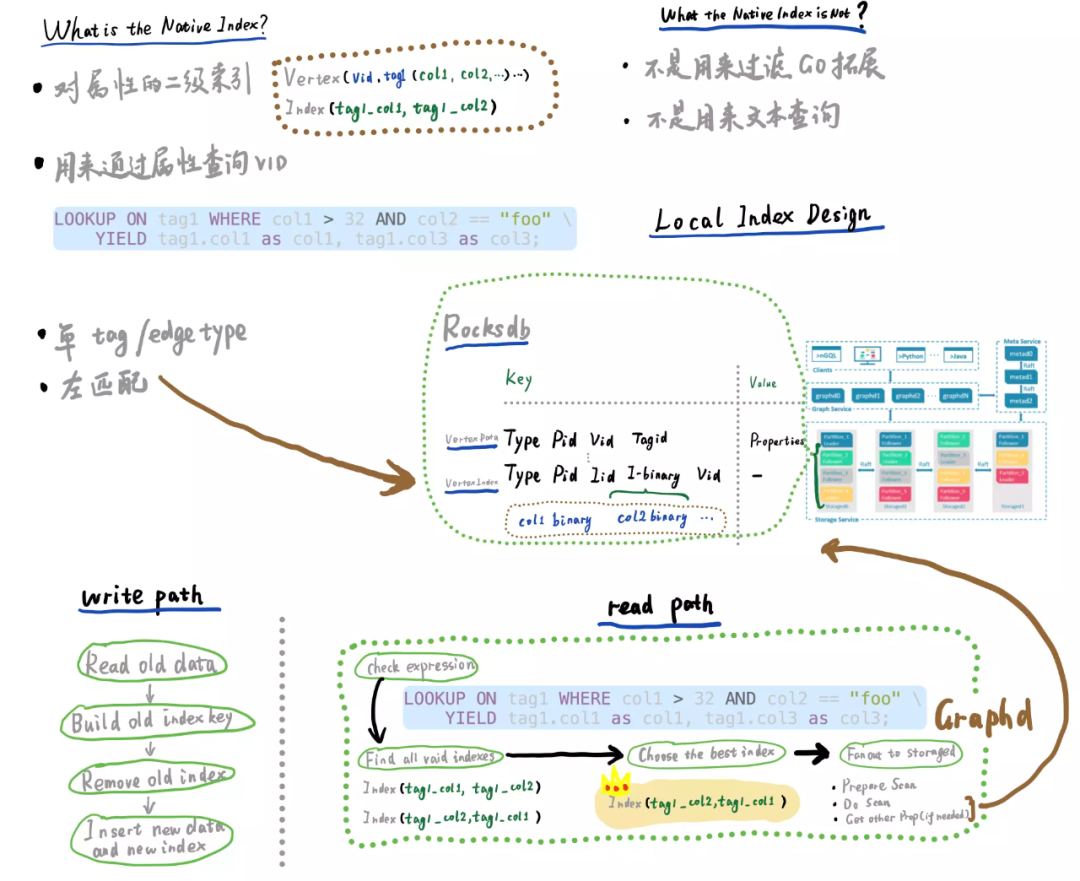 What is the Native Index?
• 对属性的二级索引
Vertex(vid, tag1 (col1, col2, …) …)
Index (tag1_col1, tag1_col2)
• 用来通过属性查询VID
LOOKUP ON tag1 WHERE col1 > 32 AND col2 == "foo" \
YIELD tag1.col1 as col1, tag1.col3 as col3;
What the Native Index is Not?
• 不是用来过滤 GO 拓展
• 不是用来文本查询
Local Index Design
• 单 tag/edge type
• 左匹配
Rocksdb
Key
Value
Vertex Data Type Pid Vid Tagid Properties
Vertex Index Type Pid Iid I-binary Vid —
col1 binary col2 binary …
>nGQL
>Python
…
>Java
Clients
graphd0
graphd1
graphd2
…
graphdN
Graph Service
Meta Service
metad0
Raft
metad1
Raft
metad2
Raft
Raft
Raft
Storaged0
Storage Service
write path
Read old data
Build old index key
Remove old index
Insert new data
and new index
read path
check expression
LOOKUP ON tag1 WHERE col1 > 32 AND col2 == "foo" \
YIELD tag1.col1 as col1, tag1.col3 as col3;
Graphd
Find all vaid indexes
Index (tag1_col1, tag1_col2)
Index (tag1_col2, tag1_col1)
Choose the best index
Index (tag1_col2, tag1_col1)
Fanout to storaged
• Prepare Scan
• Do Scan
• Get other Prop (if needed)